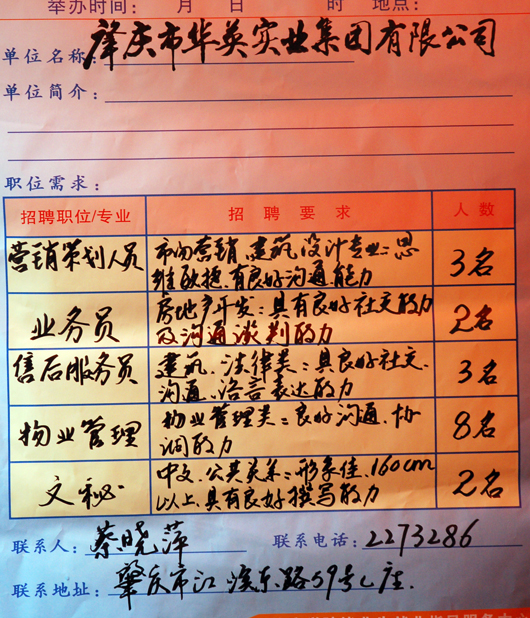 举办时间： 月 日 时 地点：
单位名称：肇庆市华英实业集团有限公司
单位简介：
职位需求：
招聘职位/专业 招聘要求 人数
营销策划人员 市场营销、建筑、设计专业：思 3名
维敏捷、有良好沟通能力
业务员 房地产开发：具有良好社交能力 2名
及沟通谈判能力
售后服务员 建筑、法律类：具良好社交、 3名
沟通、语言表达能力
物业管理 物业管理类：良好沟通、协 8名
调能力
文秘 中文、公共关系：形象佳、160cm 2名
以上、具有良好撰写能力
联系人：蔡晓萍 联系电话：2273286
联系地址：肇庆市江滨东路59号C座.